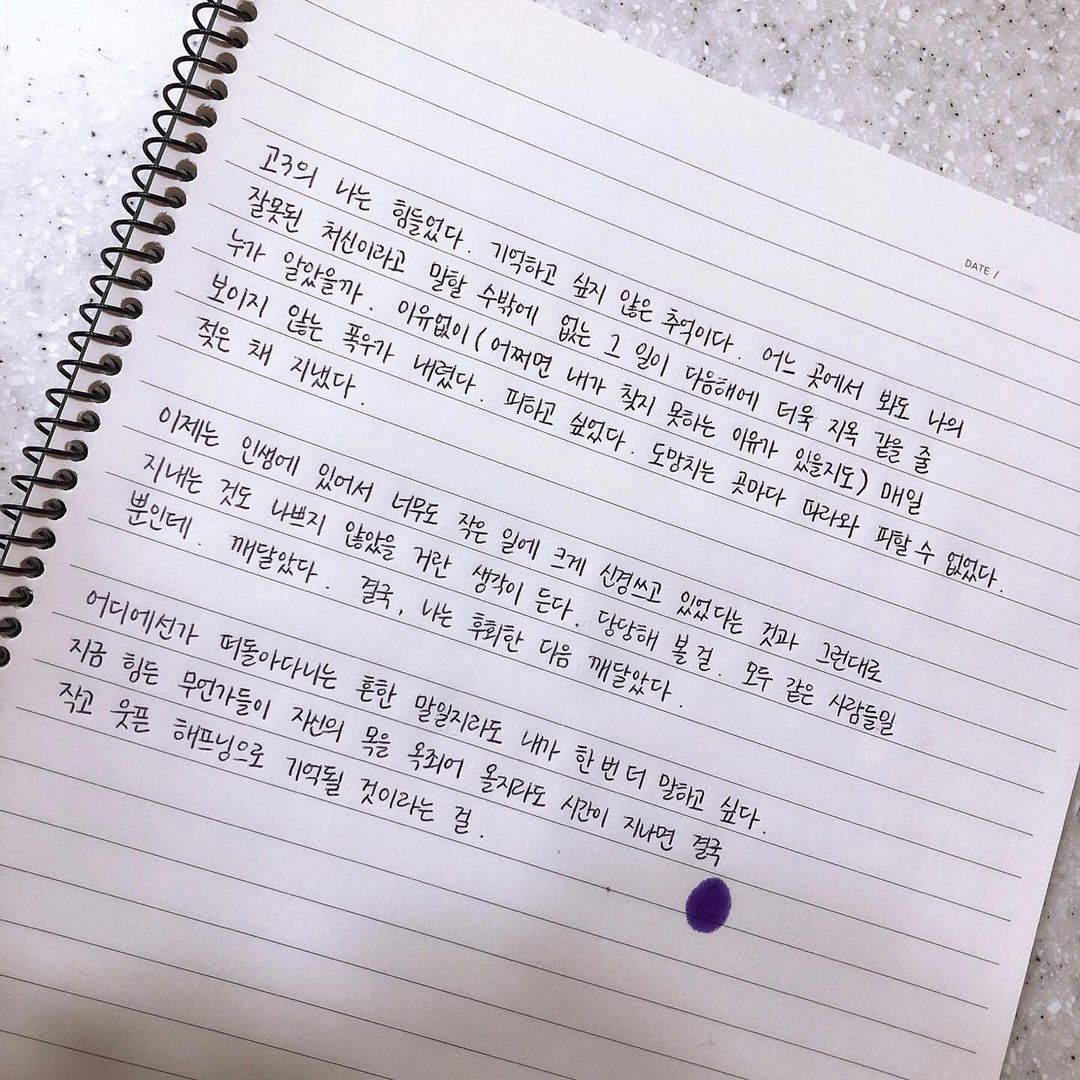 DATE /
고3의 나는 힘들었다. 기억하고 싶지 않은 추억이다. 어느 곳에서 봐도 나의
잘못된 처신이라고 말할 수밖에 없는 그 일이 다음해에 더욱 지옥 같을 줄
누가 알았을까. 이유없이(어쩌면 내가 찾지 못하는 이유가 있을지도) 매일
보이지 않는 폭우가 내렸다. 피하고 싶었다. 도망치는 곳마다 따라와 피할 수 없었다.
젖은 채 지냈다.
이제는 인생에 있어서 너무도 작은 일에 크게 신경쓰고 있었다는 것과 그런대로
지내는 것도 나쁘지 않았을 거란 생각이 든다. 당당해 볼 걸. 모두 같은 사람들일
뿐인데. 깨달았다. 결국, 나는 후회한 다음 깨달았다.
어디에선가 떠돌아다니는 흔한 말일지라도 내가 한번 더 말하고 싶다.
지금 힘든 무언가들이 자신의 목을 옥죄어 올지라도 시간이 지나면 결국
작고 웃픈 해프닝으로 기억될 것이라는 걸.